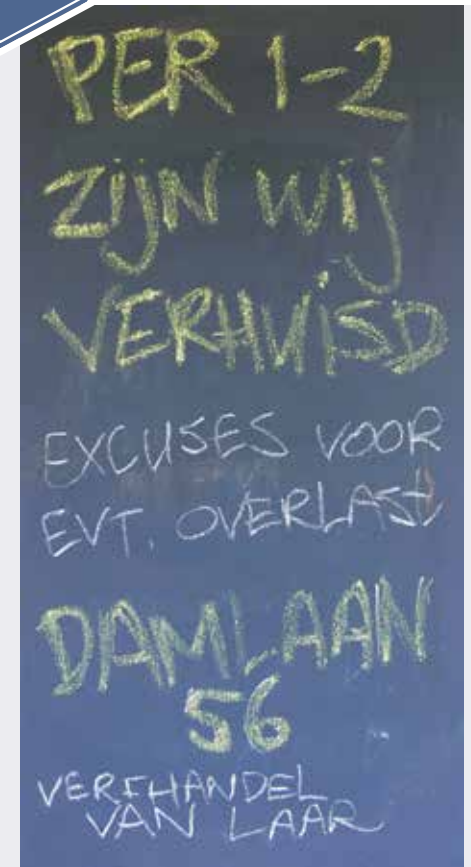 PER 1-2
ZIJN WIJ
VERHUISD
EXCUSES VOOR
EVT. OVERLAST
DAMLAAN
56
VERFHANDEL
VAN LAAR